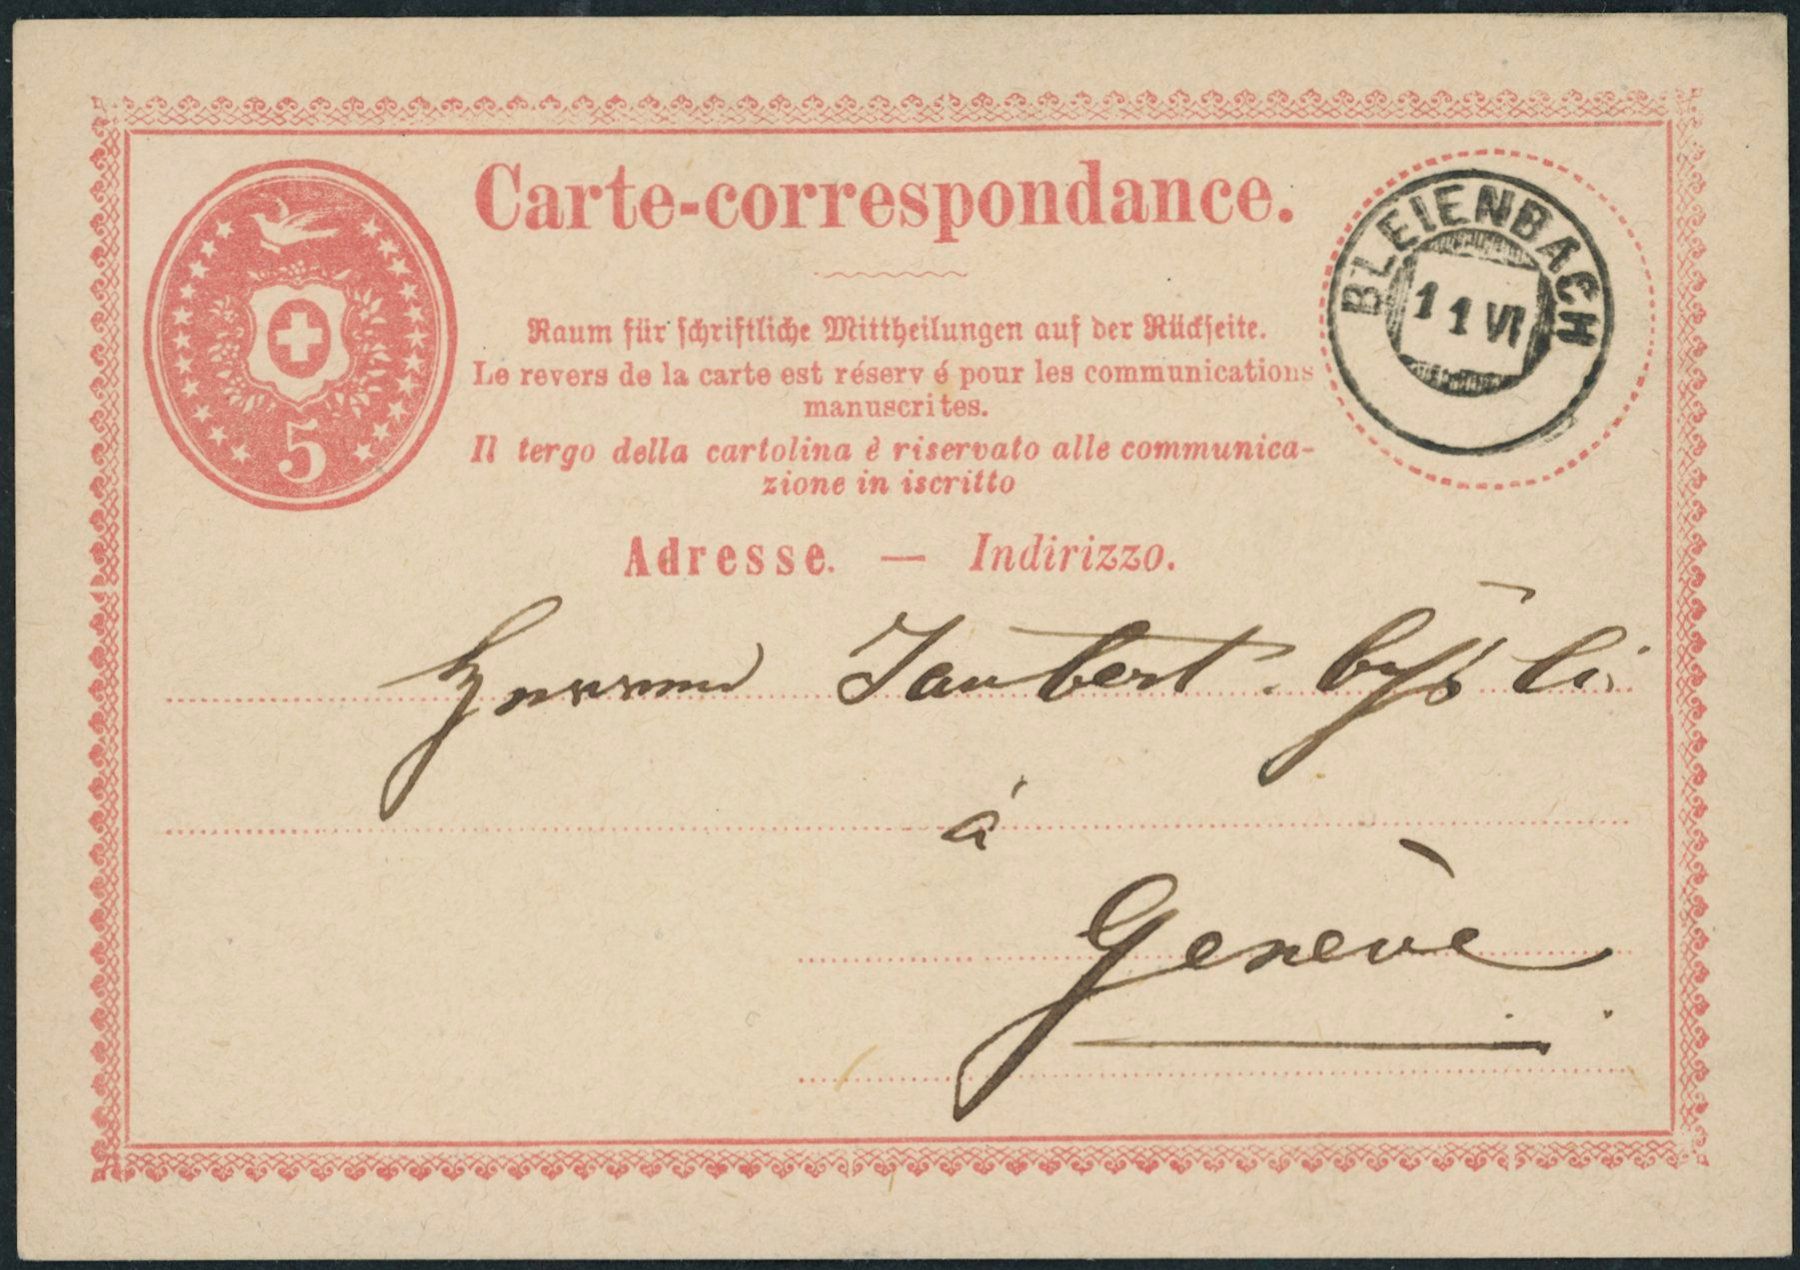 Carte-correspondance.
BLEIENBACH
11 VI
Raum für schriftliche Mittheilungen auf der Rückseite.
Le revers de la carte est réserv é pour les communications
manuscrites.
Il tergo della cartolina è riservato alle communica-
zione in iscritto
5
Adresse. — Indirizzo.
Herren
à
Genève